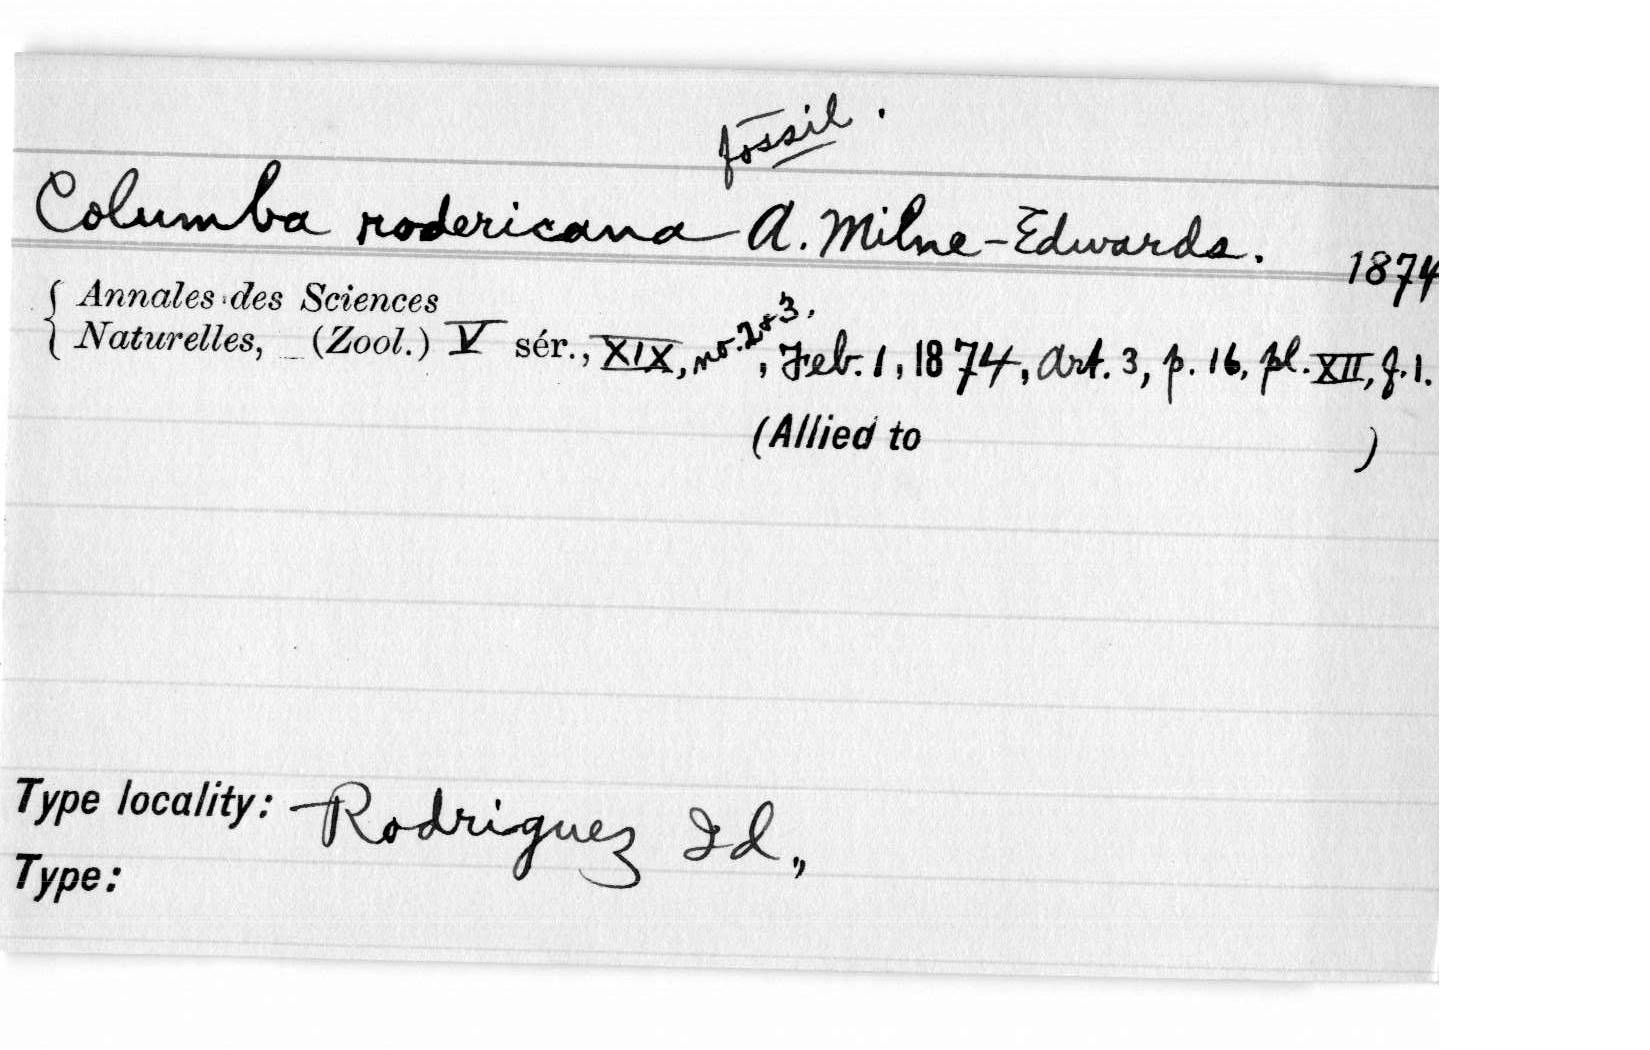 fossil.
Columba rodericana A. Milne-Edwards. 1874
{ Annales des Sciences
Naturelles, (Zool.) V sér., XIX, no. 2+3, Feb. 1, 1874, Art. 3, p. 16, pl. XII, f. 1.
(Allied to )
Type locality: Rodriguez Id.,
Type: